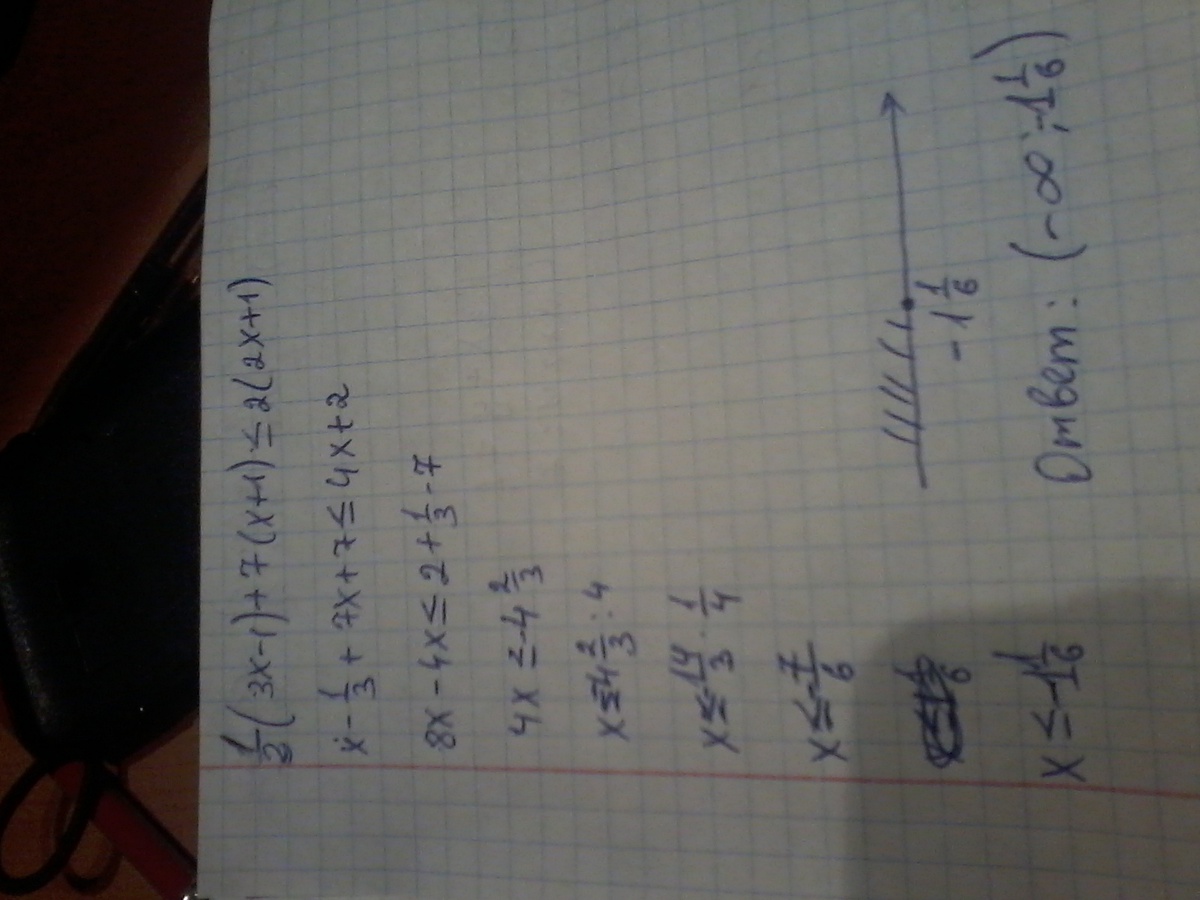 1/3(3x-1)+7(x+1)≤2(2x+1)
x-1/3+7x+7≤4x+2
8x-4x≤2+1/3-7
4x≤-4 2/3
x≤-4 2/3:4
x≤-14/3·1/4
x≤-7/6
x≤-1 1/6
-1 1/6
Ответ: (-∞;-1 1/6)